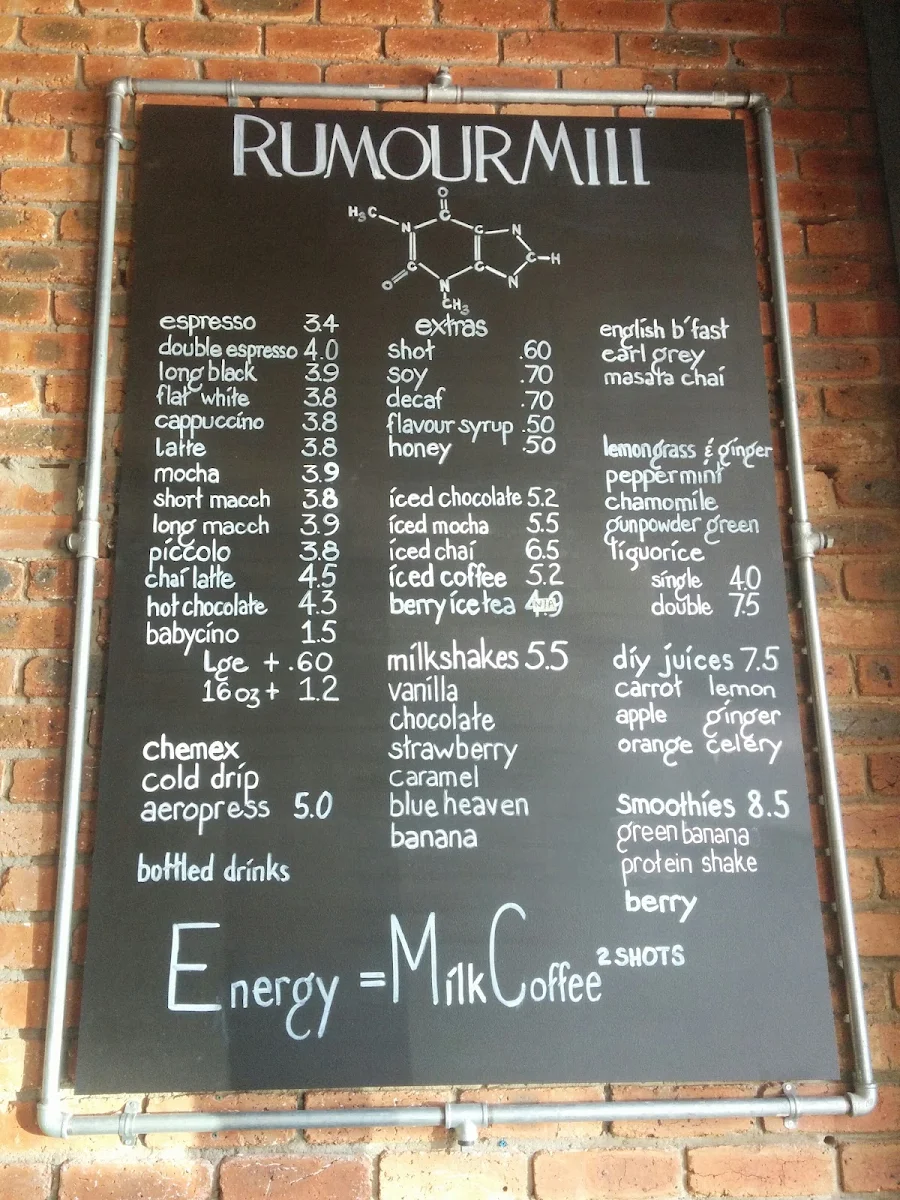 RUMOURMILL
O
H₃C
N
C
C
N
C
H
C
C
O
N
N
CH₃
espresso 3.4
double espresso 4.0
long black 3.9
flat white 3.8
cappuccino 3.8
latte 3.8
mocha 3.9
short macch 3.8
long macch 3.9
piccolo 3.8
chai latte 4.5
hot chocolate 4.3
babycino 1.5
Lge + .60
16oz + 1.2
chemex
cold drip
aeropress 5.0
bottled drinks
extras
shot .60
soy .70
decaf .70
flavour syrup .50
honey .50
iced chocolate 5.2
iced mocha 5.5
iced chai 6.5
iced coffee 5.2
berry ice tea 4.9
milkshakes 5.5
vanilla
chocolate
strawberry
caramel
blue heaven
banana
english b'fast
earl grey
masala chai
lemongrass & ginger
peppermint
chamomile
gunpowder green
liquorice
single 4.0
double 7.5
diy juices 7.5
carrot lemon
apple ginger
orange celery
smoothies 8.5
green banana
protein shake
berry
Energy = Milk Coffee 2 SHOTS